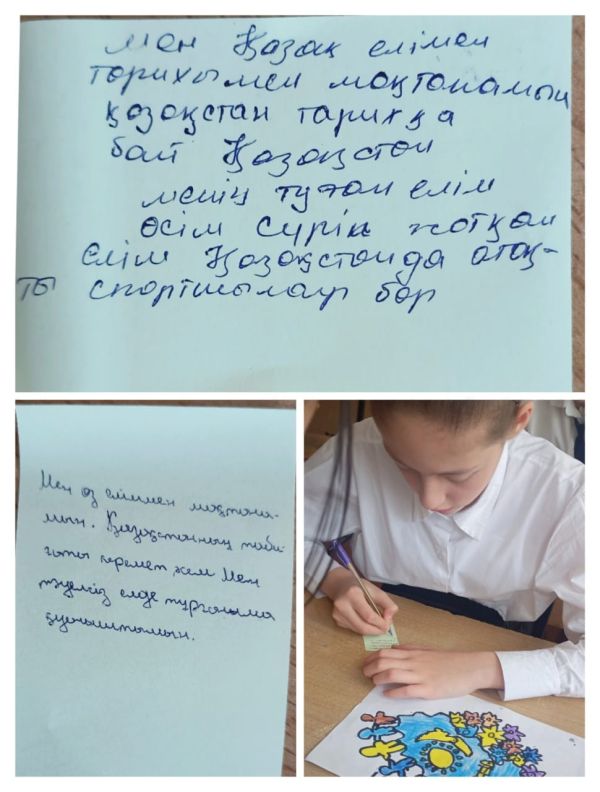 мен Қазақ елімен
торихымен мақтанамын
қазақстан тарихқа
бай Қазақстан
менің туған елім
өсім сүріп жатқан
Елім Қазақстанда атақ-
ты спортшылар бар
Мен өз елімен мақтана-
мын. Қазақстанның таби-
ғаты керемет әсем Мен
тәуелсіз елде тұрғаныма
қуаныштымын.